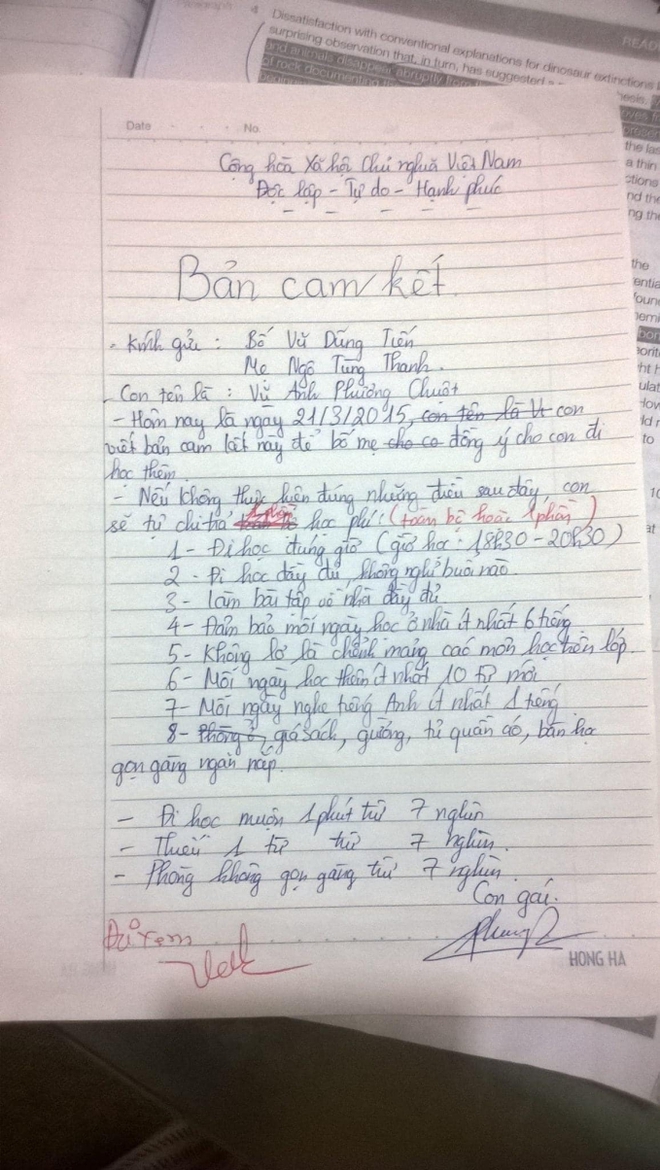 4 Dissatisfaction with conventional explanations for dinosaur extinctions
READ
surprising observation that, in turn, has suggested a
and animals disappear abruptly from
of rock documenting
Date No.
Cộng hòa Xã hội Chủ nghĩa Việt Nam
Độc lập - Tự do - Hạnh phúc
Bản cam kết
- Kính gửi : Bố Vũ Dũng Tiến
Mẹ Ngô Tùng Thanh.
- Con tên là : Vũ Anh Phương Chuột
- Hôm nay là ngày 21/3/2015, con tên là Vt con
viết bản cam kết này để bố mẹ cho co đồng ý cho con đi
học thêm
- Nếu không thực hiện đúng những điều sau đây, con
sẽ tự chi trả học phí: (toàn bộ hoặc 1 phần)
1 - Đi học đúng giờ (giờ học : 18h30 - 20h30)
2 - Đi học đầy đủ, không nghỉ buổi nào.
3 - Làm bài tập về nhà đầy đủ
4 - Đảm bảo mỗi ngày học ở nhà ít nhất 6 tiếng
5 - Không lơ là chểnh mảng các môn học trên lớp.
6 - Mỗi ngày học thêm ít nhất 10 từ mới
7 - Mỗi ngày nghe tiếng Anh ít nhất 1 tiếng
8 - Phòng ở, giá sách, gương, tủ quần áo, bàn học
gọn gàng ngăn nắp.
- Đi học muộn 1 phút trừ 7 nghìn
- Thiếu 1 từ trừ 7 nghìn.
- Phòng không gọn gàng trừ 7 nghìn.
Con gái.
Đã xem
HONG HA